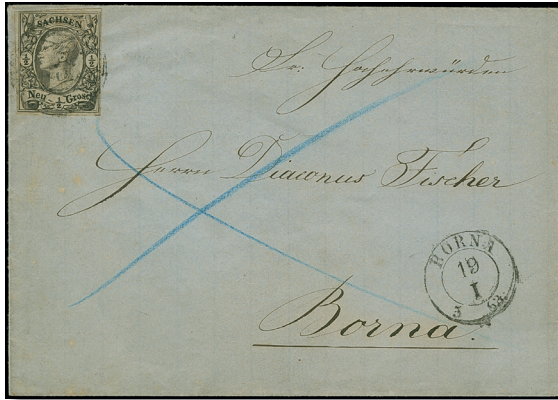 SACHSEN
½ ½
Neu ½ Grosch
Sr. Hochehrwürden
Herrn Diaconus Fischer
BORNA
19
I
3 63.
Borna.